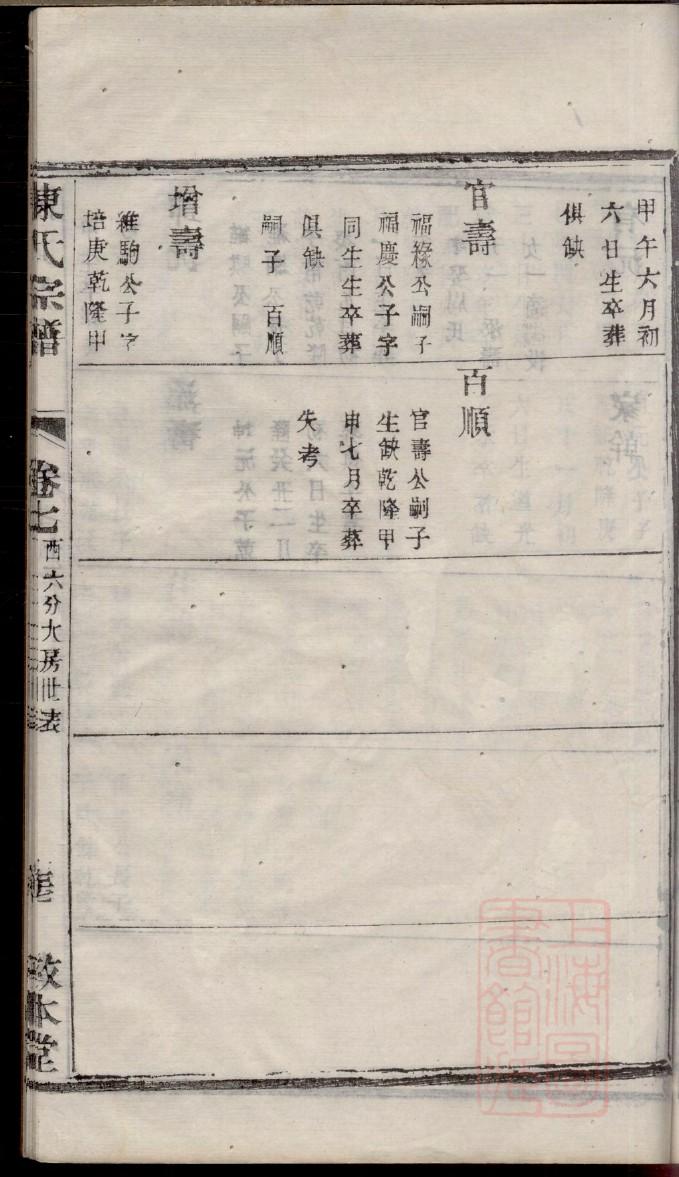 甲午六月初
六日生卒葬
俱缺
官壽
福緣公嗣子
福慶公子字
同生生卒葬
俱缺
嗣子 百順
增壽
維駒公子字
培庚乾隆甲
百順
官壽公嗣子
生缺乾隆甲
申七月卒葬
失考
陳氏宗譜
卷七
西六分大房世表
敬本堂
上海圖書館藏